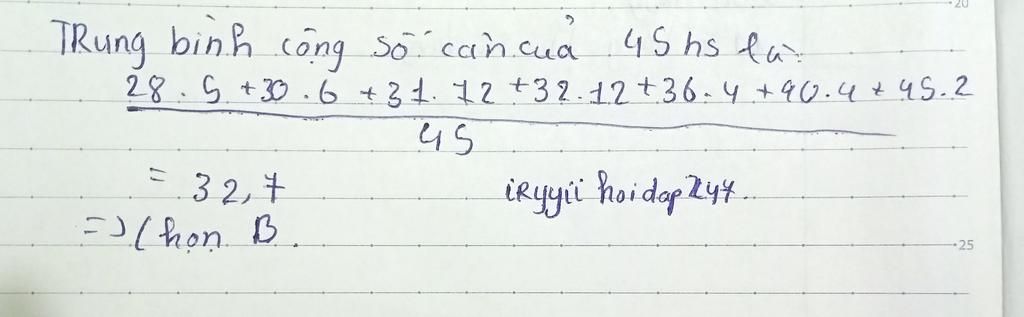 20
TRung bình cộng số cân của 45 hs là:
28 . 5 + 30 . 6 + 31 . 12 + 32 . 12 + 36 . 4 + 40 . 4 + 45 . 2
45
= 32,7
iRyyii hoidap247..
=> Chọn B.
25